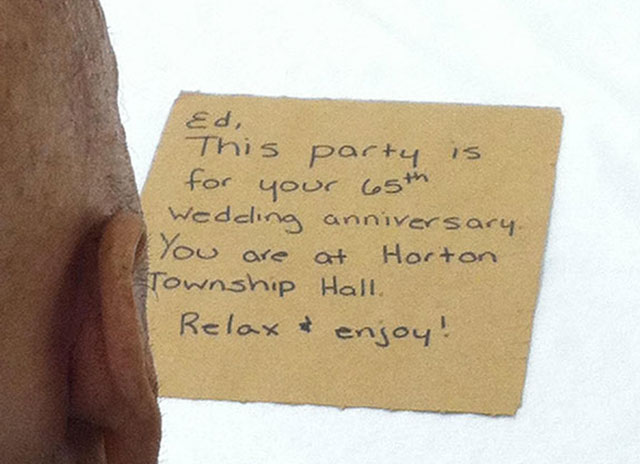 Ed,
This party is
for your 65th
wedding anniversary.
You are at Horton
Township Hall.
Relax & enjoy!